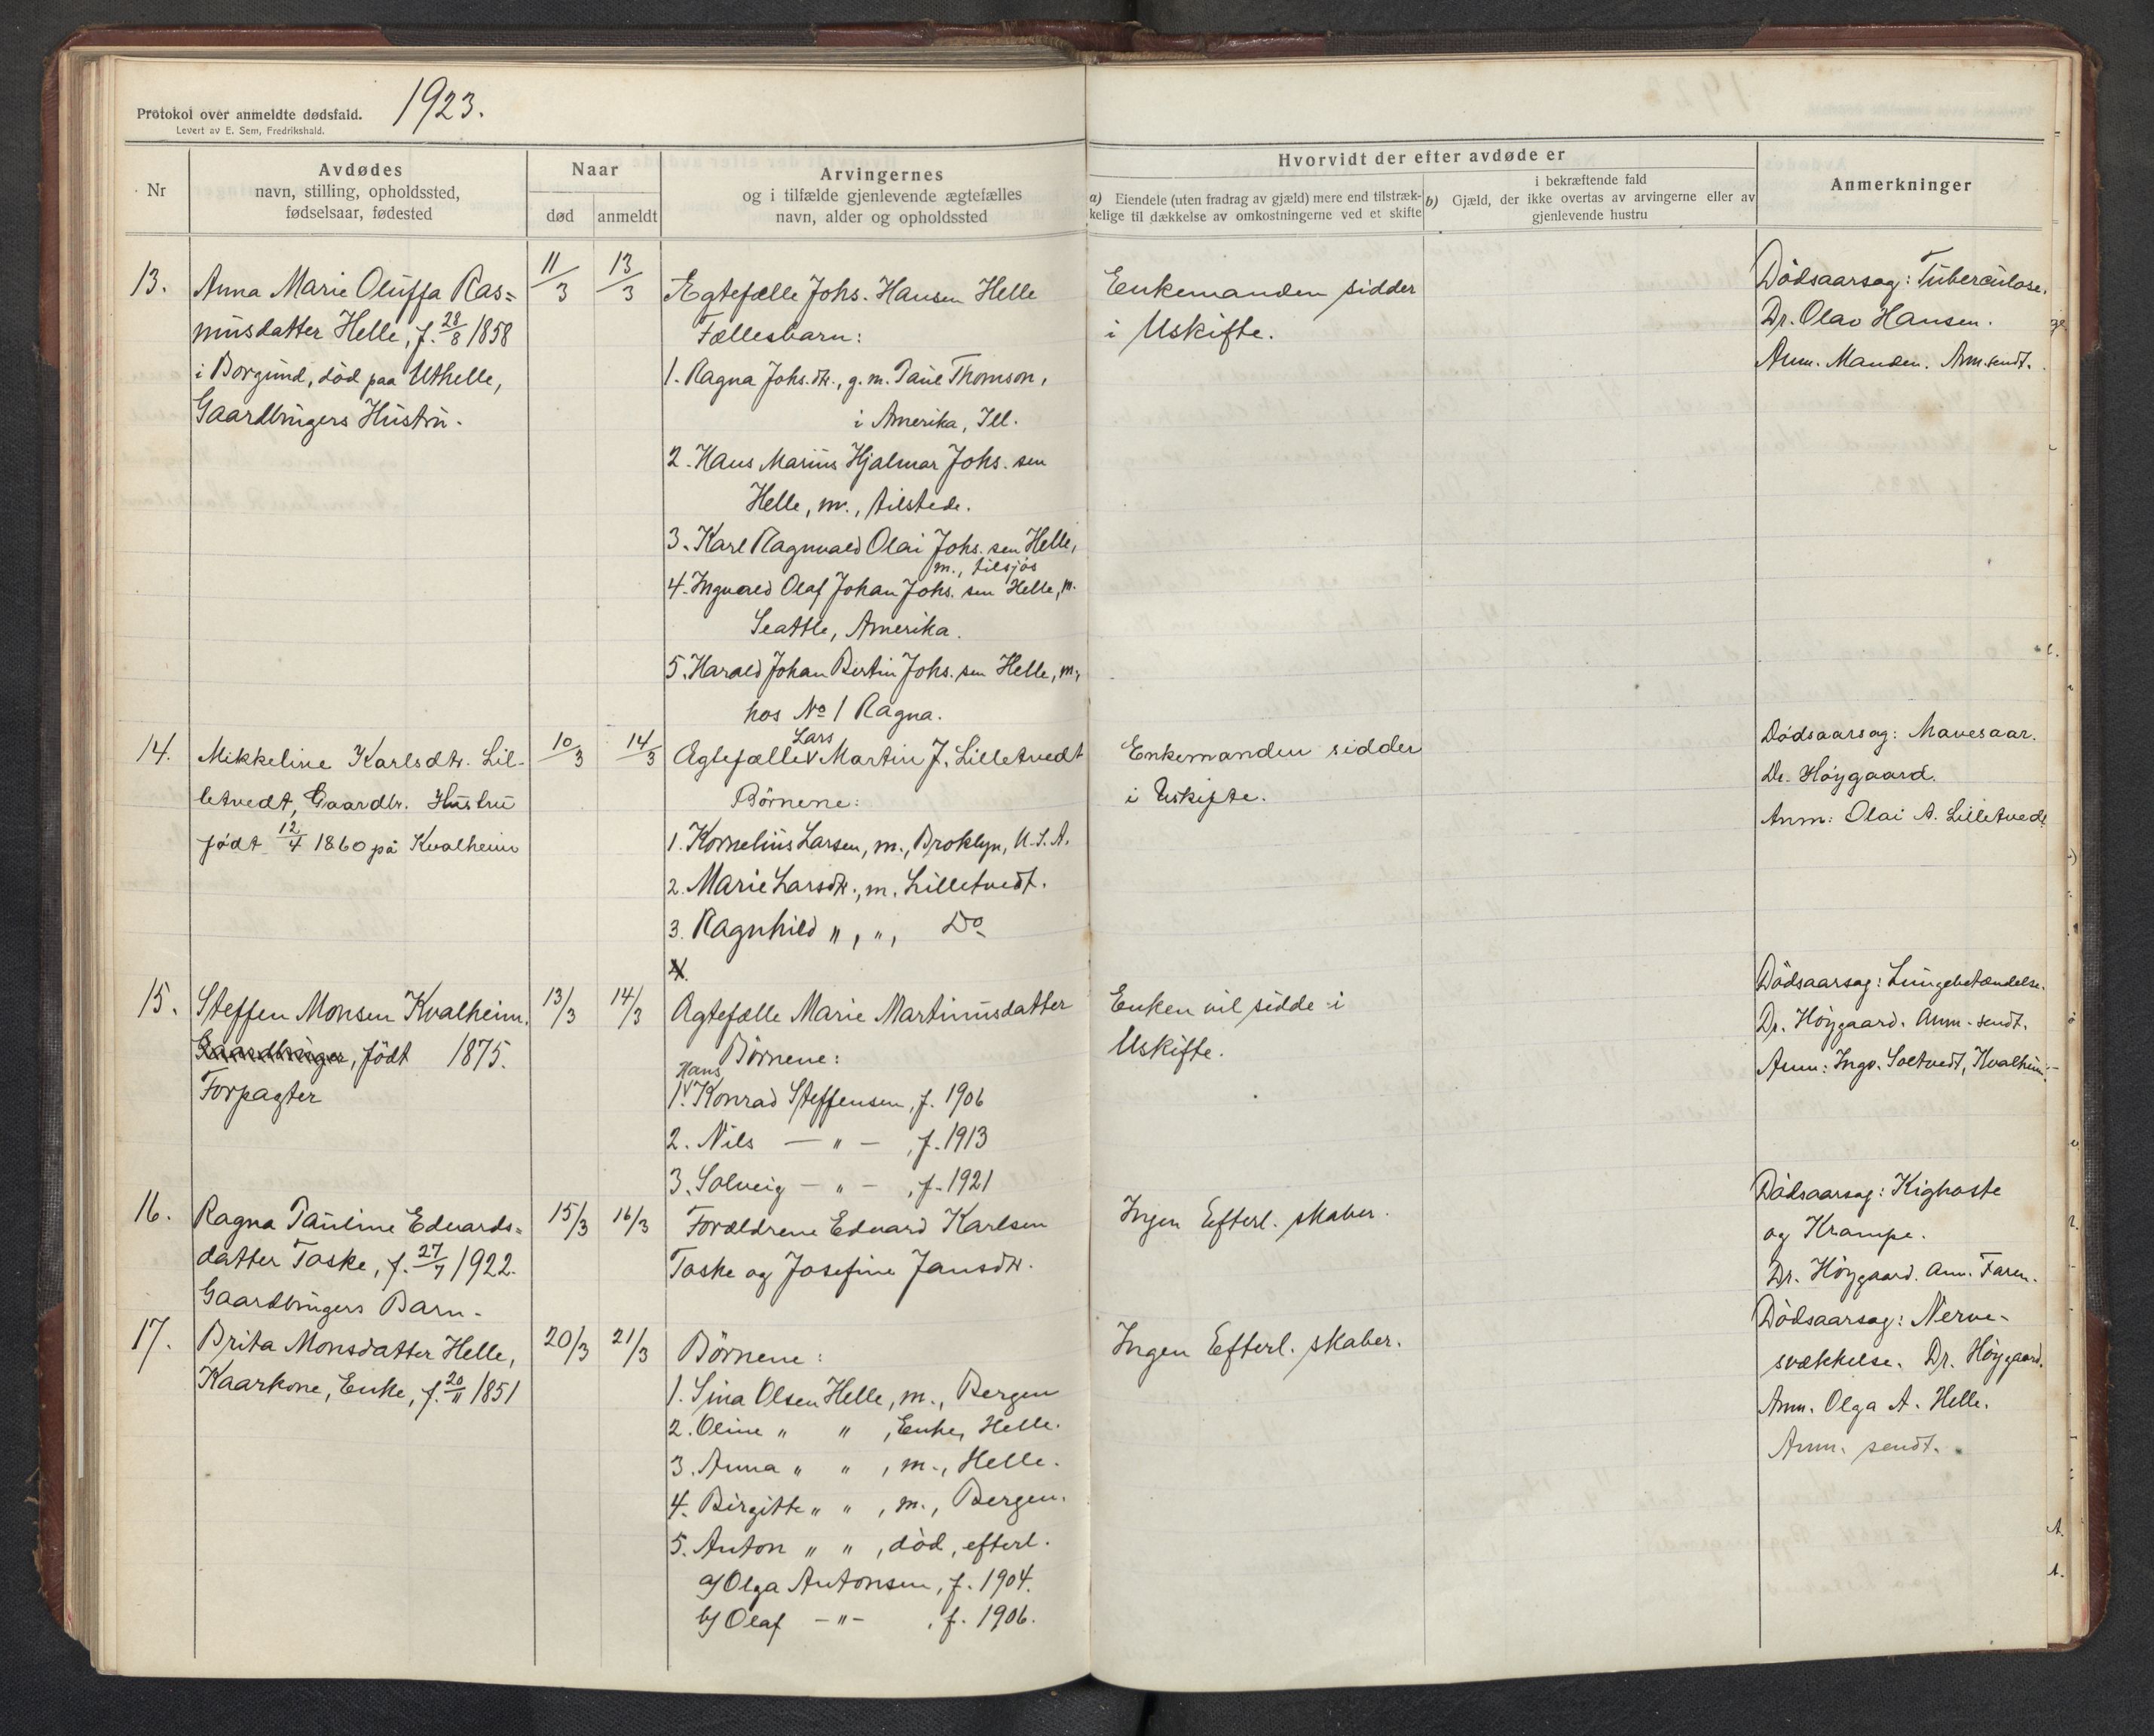 Protokol over anmeldte dødsfald.
Levert av E. Sem, Fredrikshald.
1923.
Nr
Avdødes
navn, stilling, opholdssted,
fødselsaar, fødested
Naar
død
anmeldt
Arvingernes
og i tilfælde gjenlevende ægtefælles
navn, alder og opholdssted
Hvorvidt der efter avdøde er
a) Eiendele (uten fradrag av gjæld) mere end tilstræk-
kelige til dækkelse av omkostningerne ved et skifte
i bekræftende fald
b) Gjæld, der ikke overtas av arvingerne eller av
gjenlevende hustru
Anmerkninger
13.
Anna Marie Oluffa Ras=
musdatter Helle, f. 28/8 1858
i Borgund, död paa Uthelle,
Gaardbrugers Hustru.
11/3
13/3
Ægtefælle Johs. Hansen Helle
Fællesbarn:
1. Ragna Johs.dtr., g. m. Paul Thomson,
i Amerika, Ill.
2. Hans Marius Hjalmar Johs. sen
Helle, m., tilstede.
3. Karl Ragnvald Olai Johs. sen Helle,
m., tilsjös
4. Ingvald Olaf Johan Johs. sen Helle, m.
Seattle, Amerika.
5. Harald Johan Bertin Johs. sen Helle, m.,
hos No 1 Ragna.
Enkemanden sidder
i Uskifte.
Dödsaarsag: Tuberculose.
Dr. Olav Hansen.
Anm. Manden. Anm. sendt.
14.
Mikkeline Karlsdtr. Lil-
letvedt, Gaardbr. Hustru
födt 12/4 1860 på Kvalheim
10/3
14/3
Lars
Ægtefælle Martin J. Lilletvedt
Börnene:
1. Kornelius Larsen, m., Broklyn, U.S.A.
2. Marie Larsdtr., m. Lilletvedt.
3. Ragnhild ", ", Do
4.
Enkemanden sidder
i Uskifte.
Dödsaarsag: Mavesaar.
Dr. Höygaard.
Anm: Olai A. Lilletvedt
15.
Steffen Monsen Kvalheim.
Gaardbruger, födt 1875.
Forpagter
13/3
14/3
Ægtefælle Marie Martinusdatter
Börnene:
Hans
1. Konrad Steffensen, f. 1906
2. Nils — " — , f. 1913
3. Solveig — " — , f. 1921
Enken vil sidde i
Uskifte.
Dödsaarsag: Lungebetændelse.
Dr. Höygaard. Anm. sendt.
Anm: Ingv. Soltvedt, Kvalheim.
16.
Ragna Pauline Edvards=
datter Taske, f. 27/7 1922.
Gaardbrugers Barn.
15/3
16/3
Forældrene Edvard Karlsen
Taske og Josefine Jansdtr.
Ingen Efterl. skaber.
Dödsaarsag: Kighoste
og Krampe.
Dr. Höygaard. Anm. Faren.
17.
Brita Monsdatter Helle,
Kaarkone, Enke, f. 20/11 1851
20/3
21/3
Börnene:
1. Sina Olsen Helle, m., Bergen
2. Oline " " , Enke, Helle.
3. Anna " " , m., Helle.
4. Birgitte " " , m., Bergen.
5. Anton " " , död, efterl.
a/ Olga Antonsen, f. 1904.
b/ Olaf — " — , f. 1906.
Ingen Efterl. skaber.
Dödsaarsag: Nerve-
svækkelse. Dr. Höygaard.
Anm. Olga A. Helle.
Anm. sendt.